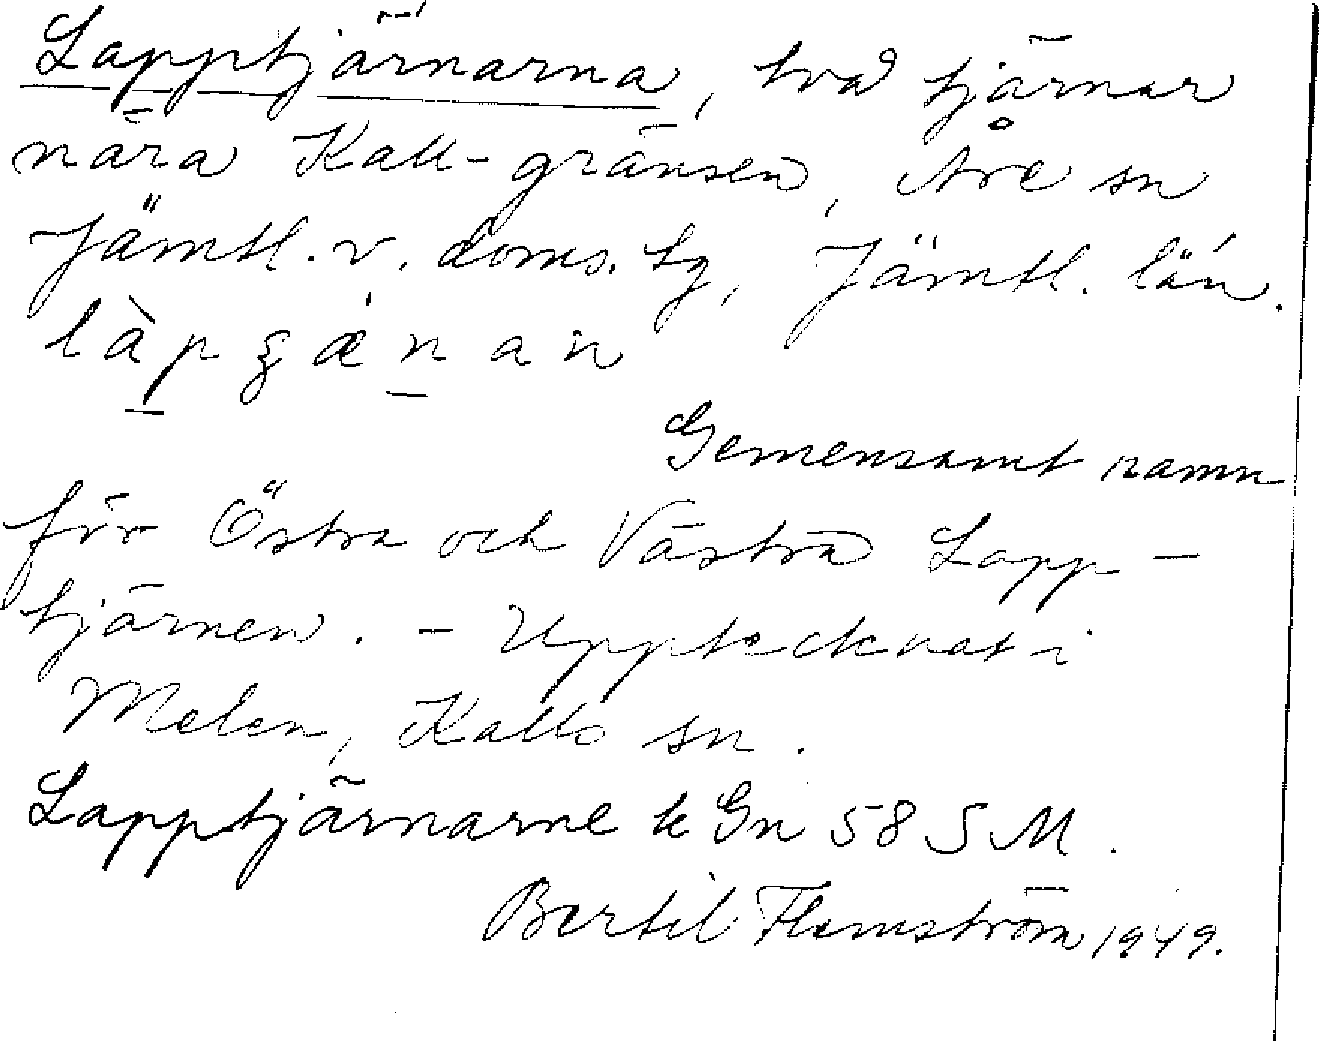 Lapptjärnarna, två tjärnar
nära Kall-gränsen, Åre sn
Jämtl. v. doms. tg, Jämtl. län.
Gemensamt namn
för Östra och Västra Lapp-
tjärnen. - Upptecknat i
Melen, Kalls sn.
Lapptjärnarne k Gn 58 S M.
Bertil Flemström 1949.